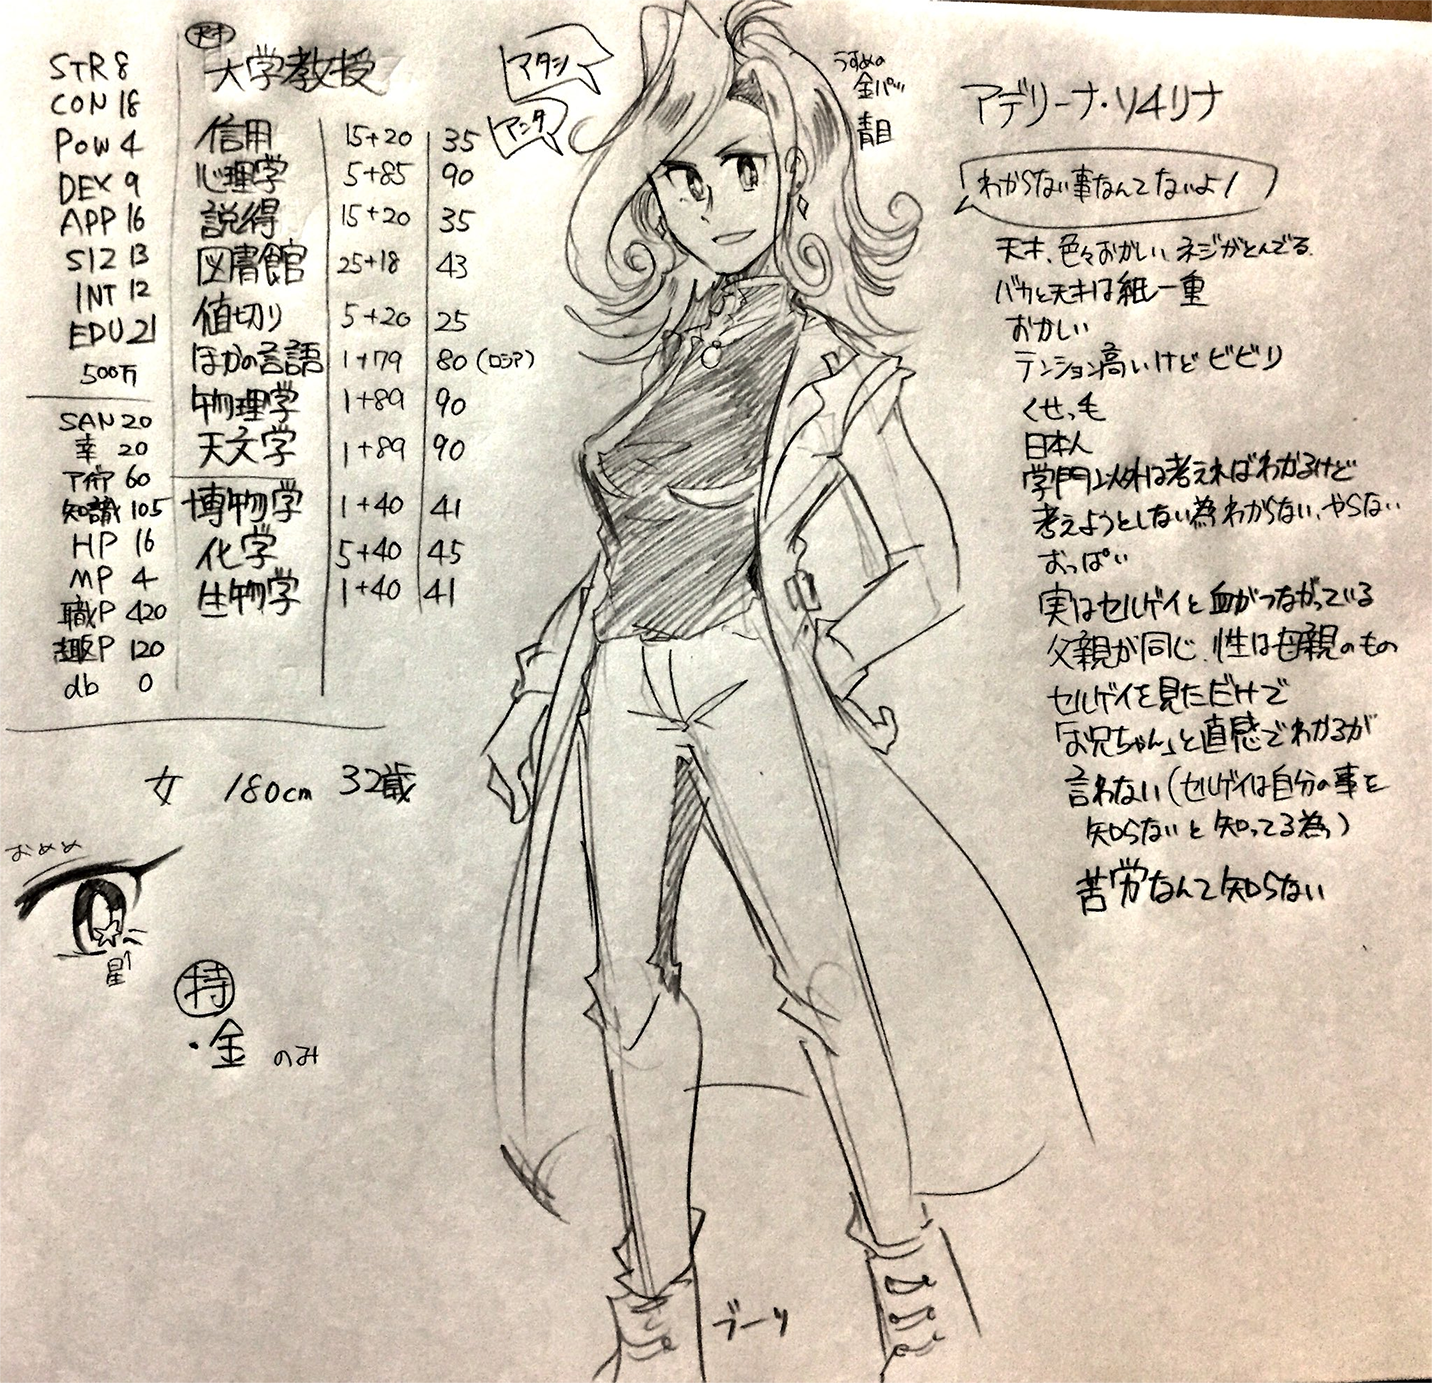 STR 8
CON 18
POW 4
DEX 9
APP 16
SIZ 13
INT 12
EDU 21
500万
SAN 20
幸 20
アイデア 60
知識 105
HP 16
MP 4
職P 420
趣P 120
db 0
大学教授
信用 15+20 35
心理学 5+85 90
説得 15+20 35
図書館 25+18 43
値切り 5+20 25
ほかの言語 1+79 80(ロシア)
物理学 1+89 90
天文学 1+89 90
博物学 1+40 41
化学 5+40 45
生物学 1+40 41
女 180cm 32歳
おめめ
星
特
・金 のみ
アタシ
アンタ
うすめの
金パツ
青目
アデリーナ・ソイリナ
わからない事なんてないよ!
天才、色々おかしい、ネジがとんでる
バカと天才は紙一重
おかしい
テンション高いけどビビリ
くせっ毛
日本人
学門以外は考えればわかるけど
考えようとしない為わからない、やらない
おっぱい
実はセルゲイと血がつながっている
父親が同じ、性は母親のもの
セルゲイを見ただけで
「お兄ちゃん」と直感でわかるが
言わない(セルゲイは自分の事を
知らないと知ってる為)
苦労なんて知らない
ブーツ